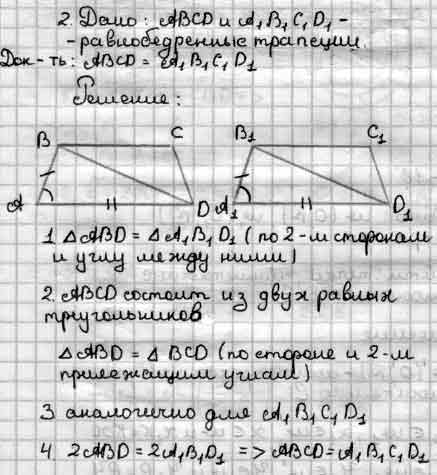 2. Дано: ABCD и A₁B₁C₁D₁ -
- равнобедренные трапеции.
Док-ть: ABCD = A₁B₁C₁D₁
Решение:
B C B₁ C₁
A D A₁ D₁
1. △ABD = △A₁B₁D₁ (по 2-м сторонам
и углу между ними)
2. ABCD состоит из двух равных
треугольников
△ABD = △BCD (по стороне и 2-м
прилежащим углам)
3 аналогично для A₁B₁C₁D₁
4 2ABD = 2A₁B₁D₁ => ABCD = A₁B₁C₁D₁